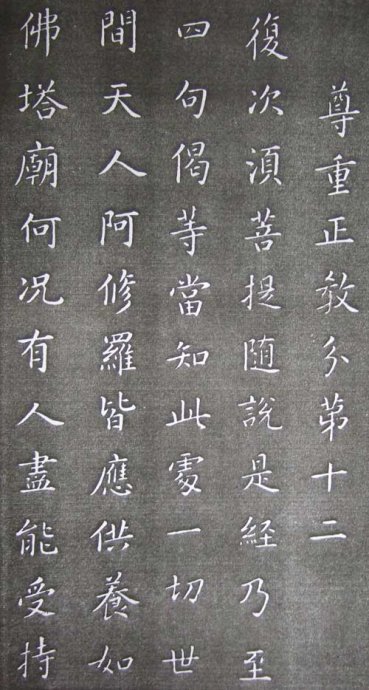 尊重正教分第十二
復次須菩提随說是経乃至
四句偈等當知此處一切世
間天人阿修羅皆應供養如
佛塔廟何况有人盡能受持